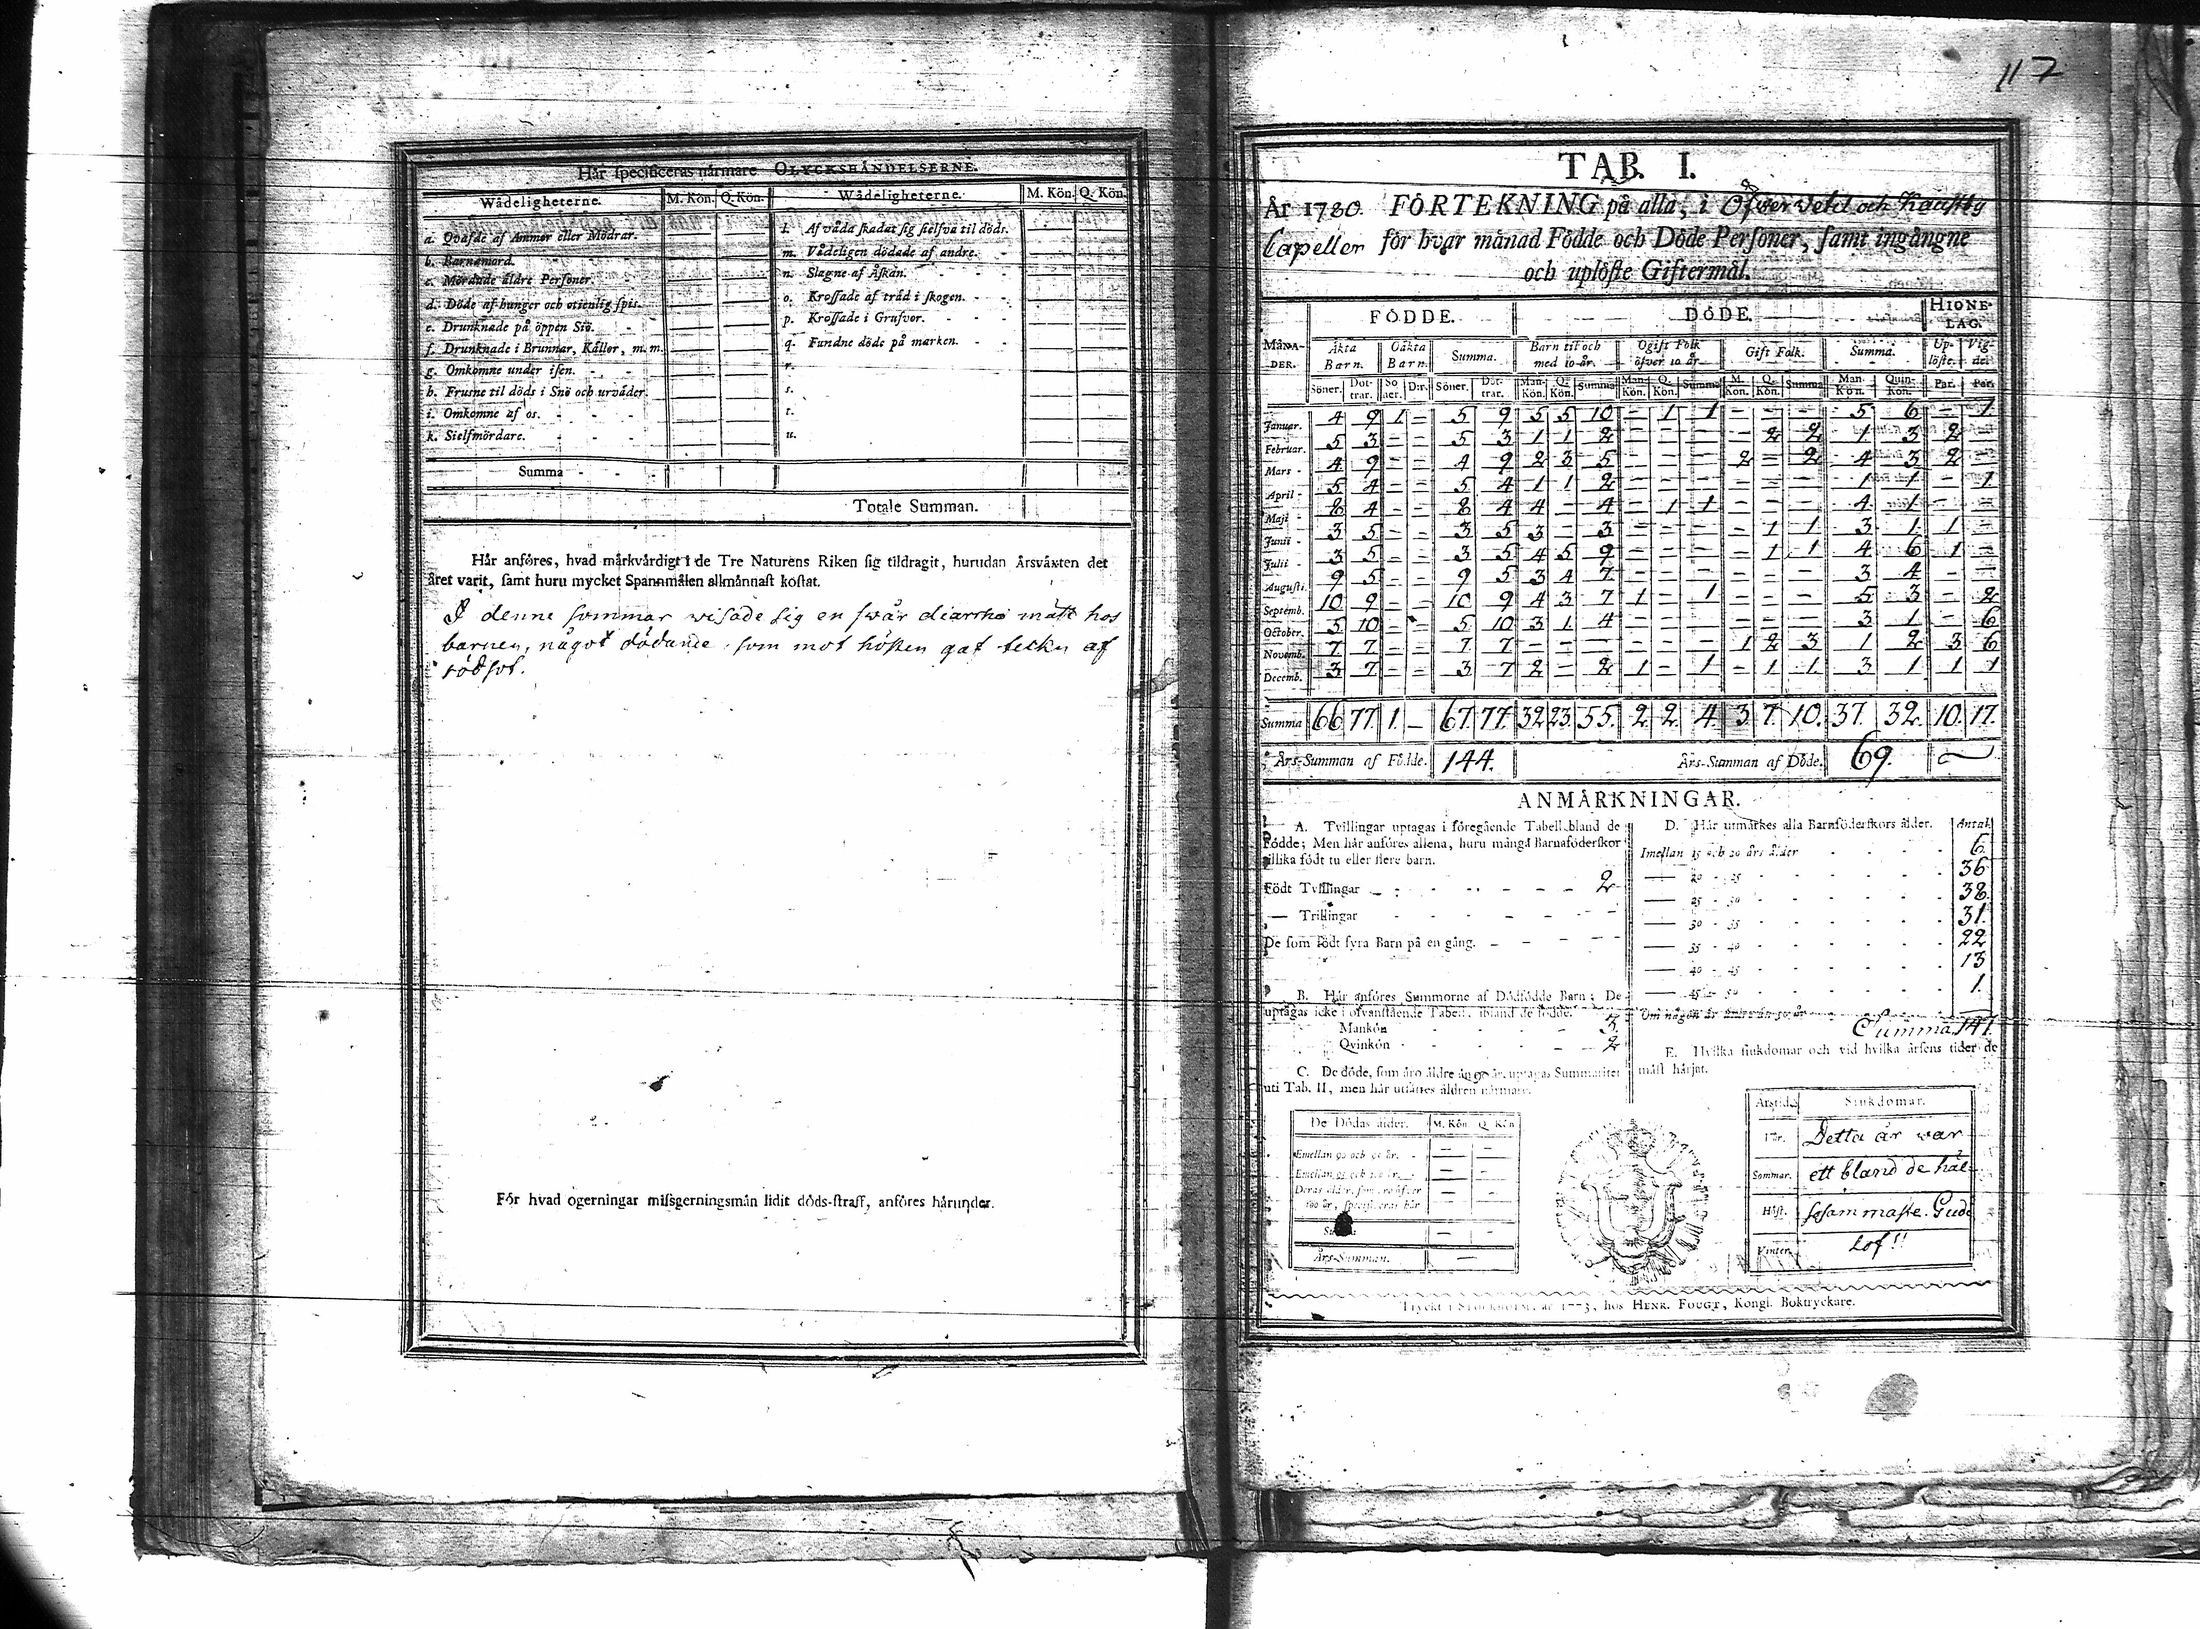 Här specificeras närmare OLYCKSHÄNDELSERNE.
Wådeligheterne. M. Kön. Q. Kön. Wådeligheterne. M. Kön. Q. Kön.
a. Qväfde af Ammor eller Mödrar.
b. Barnamord.
c. Mördade äldre Personer.
d. Döde af hunger och otienlig spis.
e. Drunknade på öppen Siö.
f. Drunknade i Brunnar, Källor, m. m.
g. Omkomne under isen.
h. Frusne til döds i Snö och urväder.
i. Omkomne af os.
k. Sielfmördare.
l. Af våda skadat sig sielfva til döds.
m. Vådeligen dödade af andre.
n. Slagne af Åskan.
o. Krossade af träd i skogen.
p. Krossade i Grufvor.
q. Fundne döde på marken.
r.
s.
t.
u.
Summa
Totale Summan.
Här anföres, hvad märkvärdigt i de Tre Naturens Riken sig tildragit, hurudan Årsväxten det
året varit, samt huru mycket Spannmålen allmännast kostat.
I denne sommar wisade sig en swår diarrhé mäst hos
barnen, något dödande, som mot hösten gaf tecken af
rödsot.
För hvad ogerningar missgerningsmän lidit döds-straff, anföres härunder.
117
TAB. I.
År 1780. FÖRTEKNING på alla, i Öfwer Vetil och Kaustby
Capeller för hvar månad Födde och Döde Personer, samt ingångne
och uplöste Giftermål.
FÖDDE. DÖDE. HIONE-LAG.
MÅNA-DER. Äkta Barn. Oäkta Barn. Summa. Barn til och med 10 år. Ogift Folk öfver 10 år Gift Folk. Summa. Up-löste. Vig-de.
Söner. Döt-trar. Sö ner. D:r. Söner. Döt-trar. Man-Kön. Q. Kön. Summa Man-Kön. Q. Kön. Summa M. Kön. Q. Kön. Summa Man-Kön. Quin-Kön. Par. Par.
Januar. 4 9 1 – 5 9 5 5 10 – 1 1 – – – 5 6 – 1
Februar. 5 3 – – 5 3 1 1 2 – – – – 2 2 1 3 2 –
Mars 4 9 – – 4 9 2 3 5 – – – 2 – 2 4 3 2 –
April 5 4 – – 5 4 1 1 2 – – – – – – 1 1 – 1
Maji 8 4 – – 8 4 4 – 4 – 1 1 – – – 4 1 – –
Junii 3 5 – – 3 5 3 – 3 – – – – 1 1 3 1 1 –
Julii 3 5 – – 3 5 4 5 9 – – – – 1 1 4 6 1 –
Augusti. 9 5 – – 9 5 3 4 7 – – – – – – 3 4 – –
Septemb. 10 9 – – 10 9 4 3 7 1 – 1 – – – 5 3 – 2
October. 5 10 – – 5 10 3 1 4 – – – – – – 3 1 – 6
Novemb. 7 7 – – 7 7 – – – – – – 1 2 3 1 2 3 6
Decemb. 3 7 – – 3 7 2 – 2 1 – 1 – 1 1 3 1 1 1
Summa 66 77 1. – 67. 77. 32 23. 55. 2. 2. 4. 3. 7. 10. 37. 32. 10. 17.
Års-Summan af Födde. 144. Års-Summan af Döde. 69.
ANMÄRKNINGAR.
A. Tvillingar uptagas i föregående Tabell bland de
Födde; Men här anföres allena, huru många Barnaföderskor
tillika födt tu eller flere barn.
Födt Tvillingar 2
— Trillingar
De som födt fyra Barn på en gång.
B. Här anföres Summorne af Dödfödde Barn: De
uptagas icke i ofvanstående Tabell, ibland de födde.
Mankön 3
Qvinkön 2
C. De döde, som äro äldre än 90 år, uptagas Summariter
uti Tab. II, men här utsättes åldren närmare.
De Dödas ålder. M. Kön. Q. Kön
Emellan 90 och 95 år.
Emellan 95 och 100 år.
Deras ålder, som äro öfver
100 år, specificeras här
Års-Summan.
D. Här utmärkes alla Barnföderskors ålder. Antal
Imellan 15 och 20 års ålder 6
— 20 - 25 36
— 25 - 30 38
— 30 - 35 31
— 35 - 40 22
— 40 - 45 13
— 45 - 50 1
Om någon är äldre än 50 år
Summa 147.
E. Hvilka siukdomar och vid hvilka årsens tider de
mäst härjat.
Årstid. Siukdomar.
Vår. Detta år war
Sommar. ett bland de häl-
Höst. sosammaste. Gudi
Vinter. Lof!!
Tryckt i STOCKHOLM, år 1773, hos HENR. FOUGT, Kongl. Boktryckare.